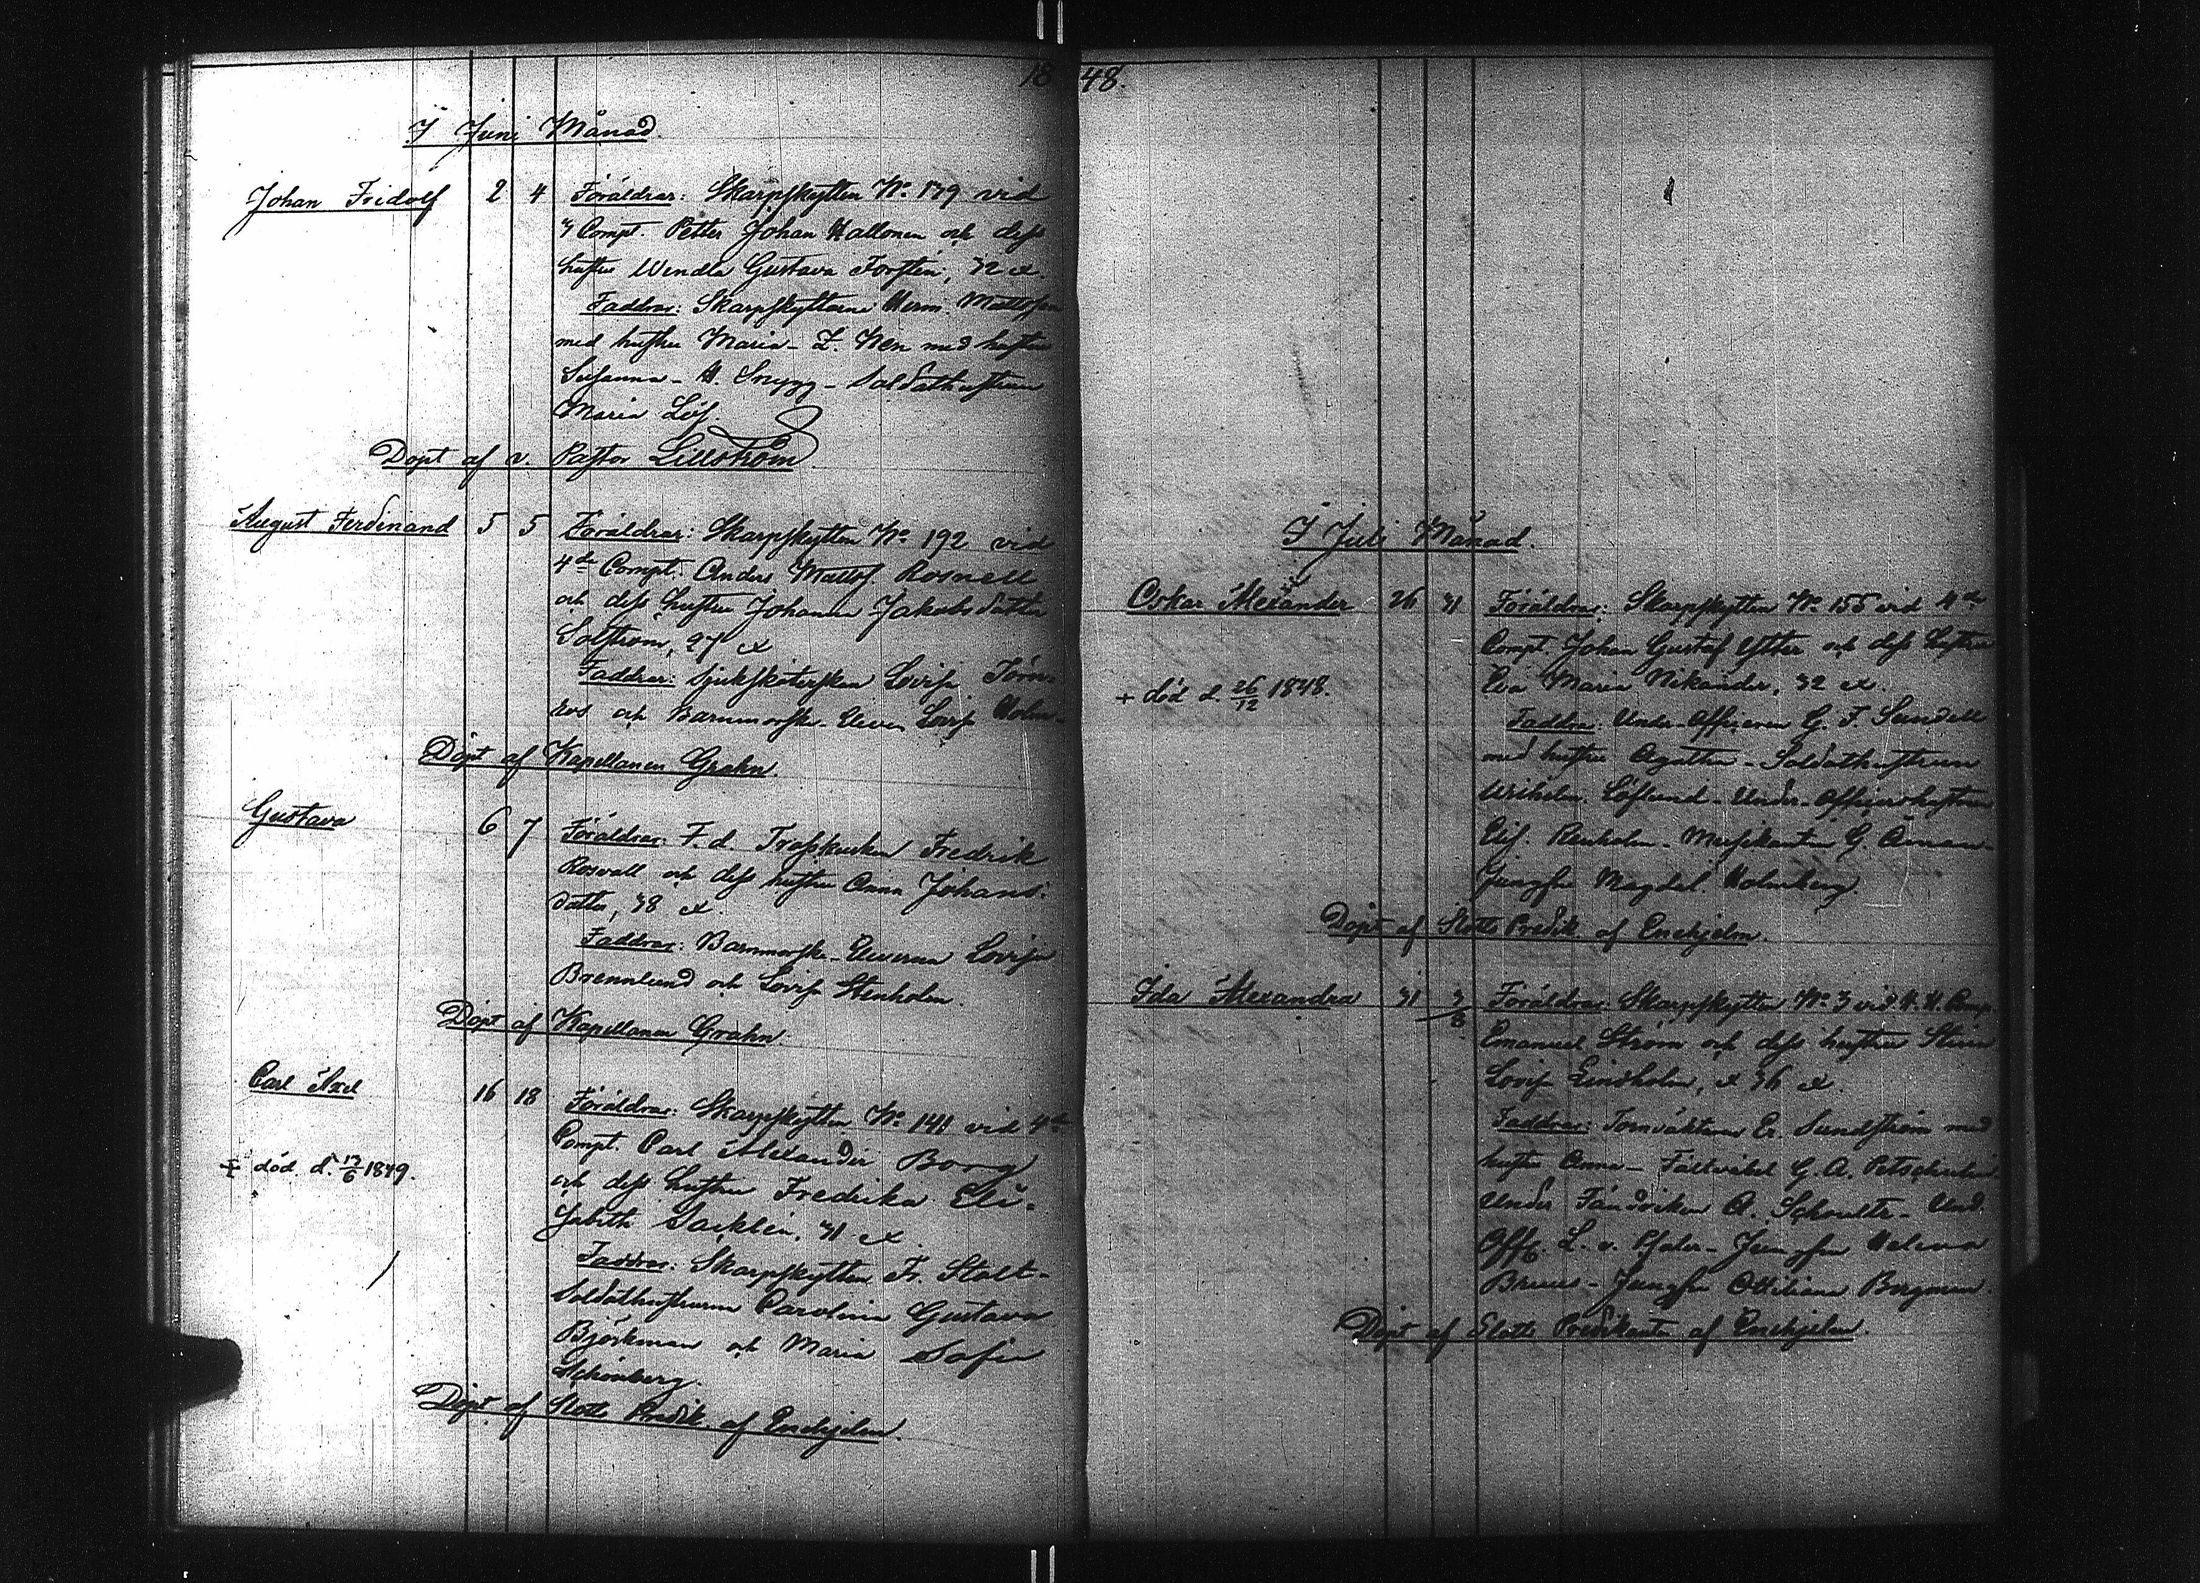 1848.
I Juni Månad.
Johan Fridolf 2 4 Föräldrar: Skarpskytten No. 179 vid
3 Compt. Petter Johan Hallonen och dess
hustru Wendla Gustava Forstén, 32 år.
Faddrar: Skarpskyttarne Herm. Mattsson
med hustru Maria - Z. Wen med hustru
Susanna - H. Snygg - Soldathustrun
Maria Löf.
Döpt af v. Pastor Lillström
August Ferdinand 5 5 Föräldrar: Skarpskytten No. 192 vid
4de Compt. Anders Mattss. Rosnell
och dess hustru Johanna Jakobsdotter
Solström, 27 år
Faddrar: Sjuksköterskan Lovisa Törn-
ros och Barnmorske-Eleven Lovisa Holm-
Döpt af Kapellanen Grahn.
Gustava 6 7 Föräldrar: F.d. Trosskusken Fredrik
Rosvall och dess hustru Anna Johans-
dotter, 38 år.
Faddrar: Barnmorske-Eleverna Lovisa
Brennlund och Lovisa Stenholm.
Döpt af Kapellanen Grahn.
Carl Axel 16 18 Föräldrar: Skarpskytten No. 141 vid 4de
Compt. Carl Alexander Borg
+ död d. 13/6 1849.
och dess hustru Fredrika Eli-
sabeth Sacklén, 31 år.
Faddrar: Skarpskytten Fr. Stolt -
Soldathustrurna Carolina Gustava
Björkman och Maria Sofia
Schönberg.
Döpt af Slotts Predik. af Enehjelm.
I Juli Månad.
Oskar Alexander 26 31 Föräldrar: Skarpskytten No. 155 vid 4de
Compt. Johan Gustaf Ytter och dess hustru
+ död d. 26/12 1848.
Eva Maria Nikander, 32 år.
Faddrar: Under-Officeren G. F. Sundell
med hustru Agatha - Soldathustrun
Wilhelm. Löflund - Under-Officershustrun
Elis. Renholm - Musikanten G. Åman -
Jungfru Magdal. Holmberg
Döpt af Slotts Predik. af Enehjelm.
Ida Alexandra 31 3/8 Föräldrar: Skarpskytten No. 3 vid Comp.
Emanuel Ström och dess hustru
Lovisa Lindholm, 36 år.
Faddrar: Tornväktaren Er. Sundström med
hustru Anna - Fältväbel G. A.
Under Fändriken A. Schoultz - Und.
Offic. L. v. Pfaler - Jungfru Helena
Bruns - Jungfru Ottiliana Bergman.
Döpt af Slotts Predikanten af Enehjelm.